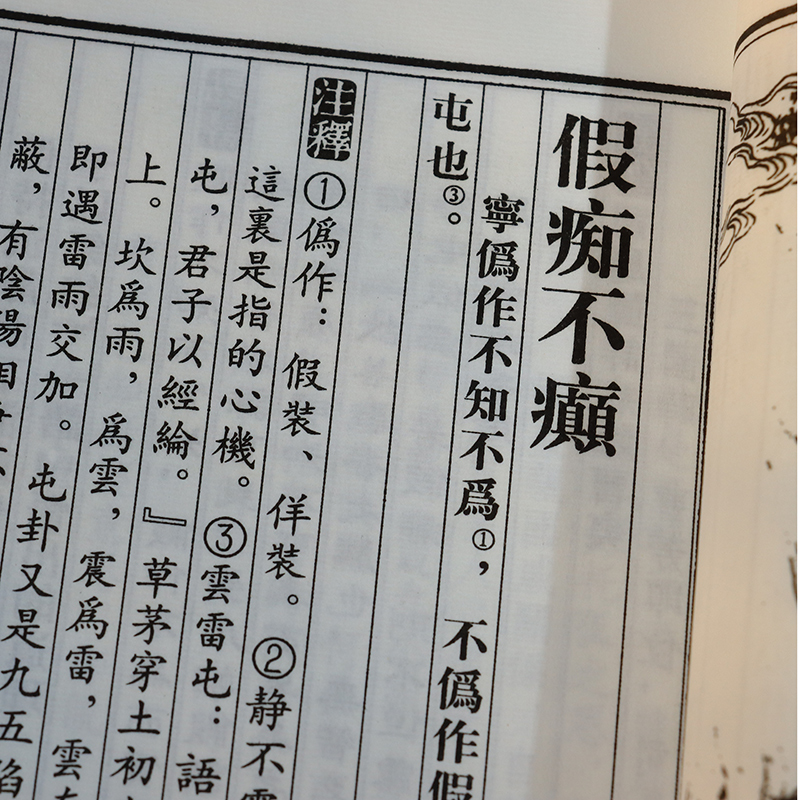 假痴不癲
寧僞作不知不爲①，不僞作假
屯也③。
注釋
①僞作：假裝、佯裝。②静不
這裏是指的心機。③雲雷屯：語
屯，君子以經綸。』草茅穿土初
上。坎爲雨，爲雲，震爲雷，雲
即遇雷雨交加。屯卦又是九五陷
蔽，有陰陽相